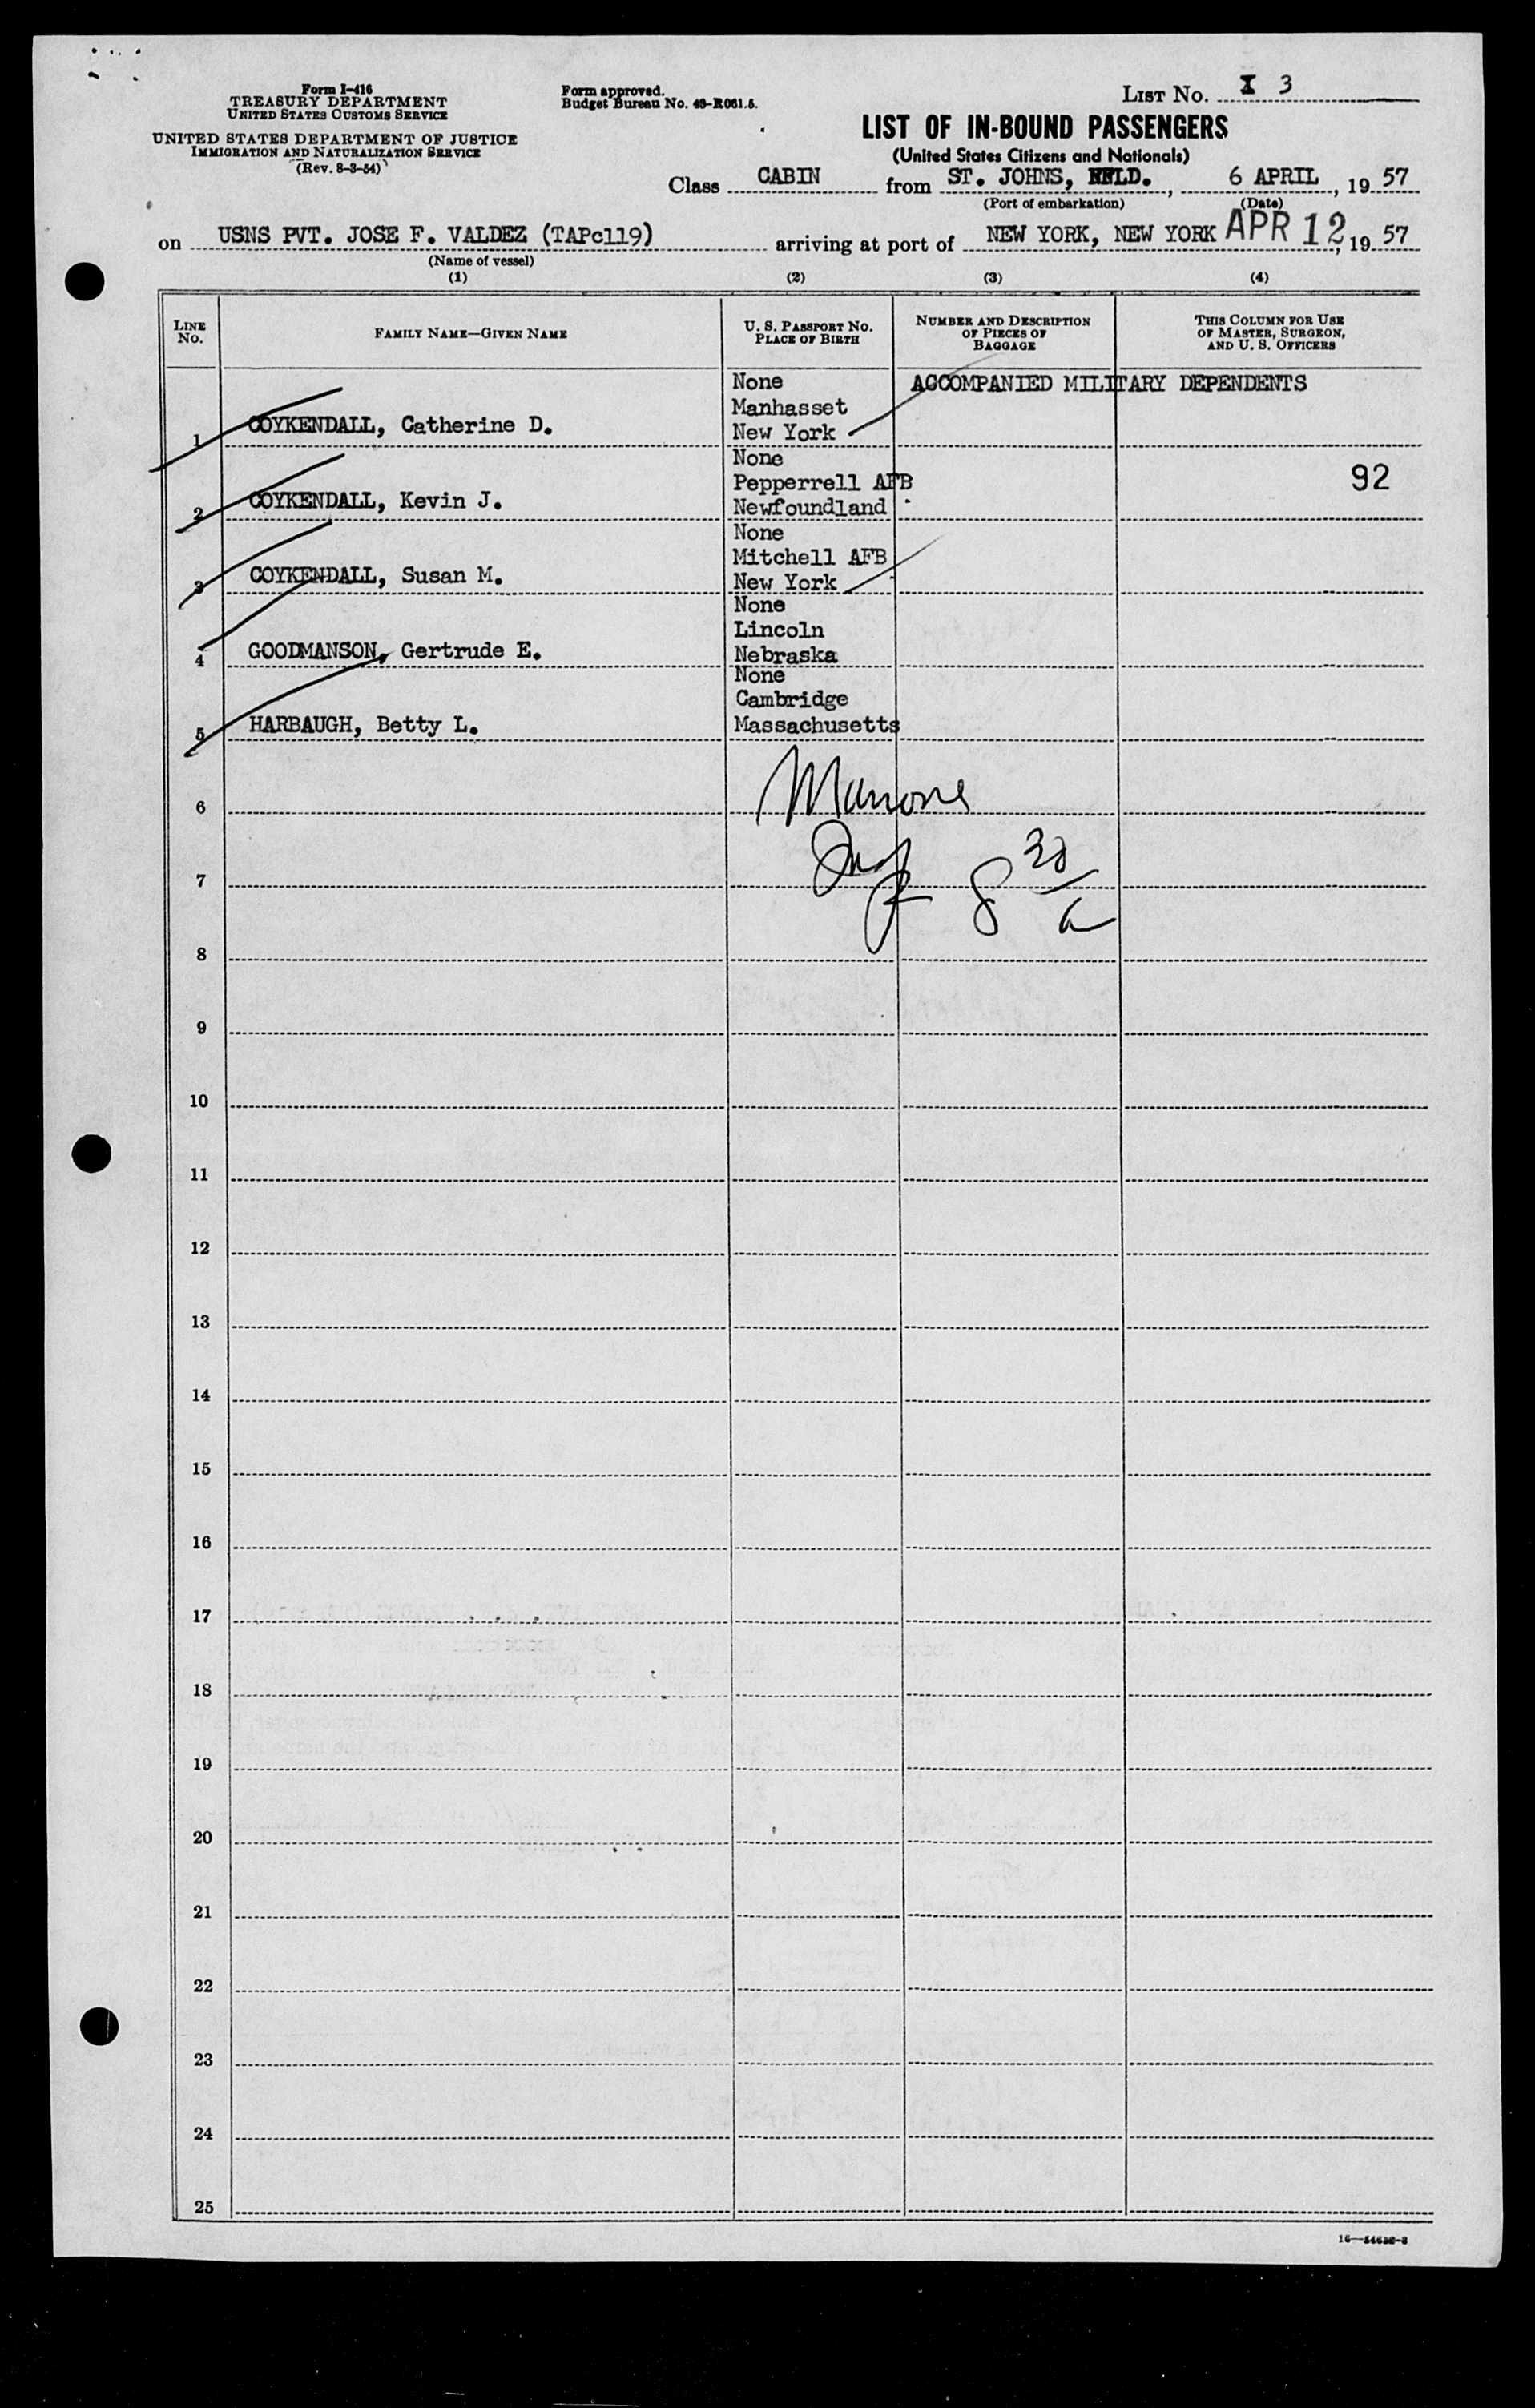 Form I-416
TREASURY DEPARTMENT
UNITED STATES CUSTOMS SERVICE
UNITED STATES DEPARTMENT OF JUSTICE
IMMIGRATION AND NATURALIZATION SERVICE
(Rev. 8-3-54)
Form approved.
Budget Bureau No. 43-R061.5.
LIST NO. 3
LIST OF IN-BOUND PASSENGERS
(United States Citizens and Nationals)
Class CABIN from ST. JOHNS, NFLD., 6 APRIL, 19 57
(Port of embarkation) (Date)
on USNS PVT. JOSE F. VALDEZ (TAPc119) arriving at port of NEW YORK, NEW YORK APR 12, 19 57
(Name of vessel)
(1) (2) (3) (4)
LINE NO. FAMILY NAME—GIVEN NAME U. S. PASSPORT NO. PLACE OF BIRTH NUMBER AND DESCRIPTION OF PIECES OF BAGGAGE THIS COLUMN FOR USE OF MASTER, SURGEON, AND U. S. OFFICERS
None ACCOMPANIED MILITARY DEPENDENTS
Manhasset
1 COYKENDALL, Catherine D. New York
None
Pepperrell AFB 92
2 COYKENDALL, Kevin J. Newfoundland
None
Mitchell AFB
3 COYKENDALL, Susan M. New York
None
Lincoln
4 GOODMANSON, Gertrude E. Nebraska
None
Cambridge
5 HARBAUGH, Betty L. Massachusetts
6
7 8 30/a
8
9
10
11
12
13
14
15
16
17
18
19
20
21
22
23
24
25